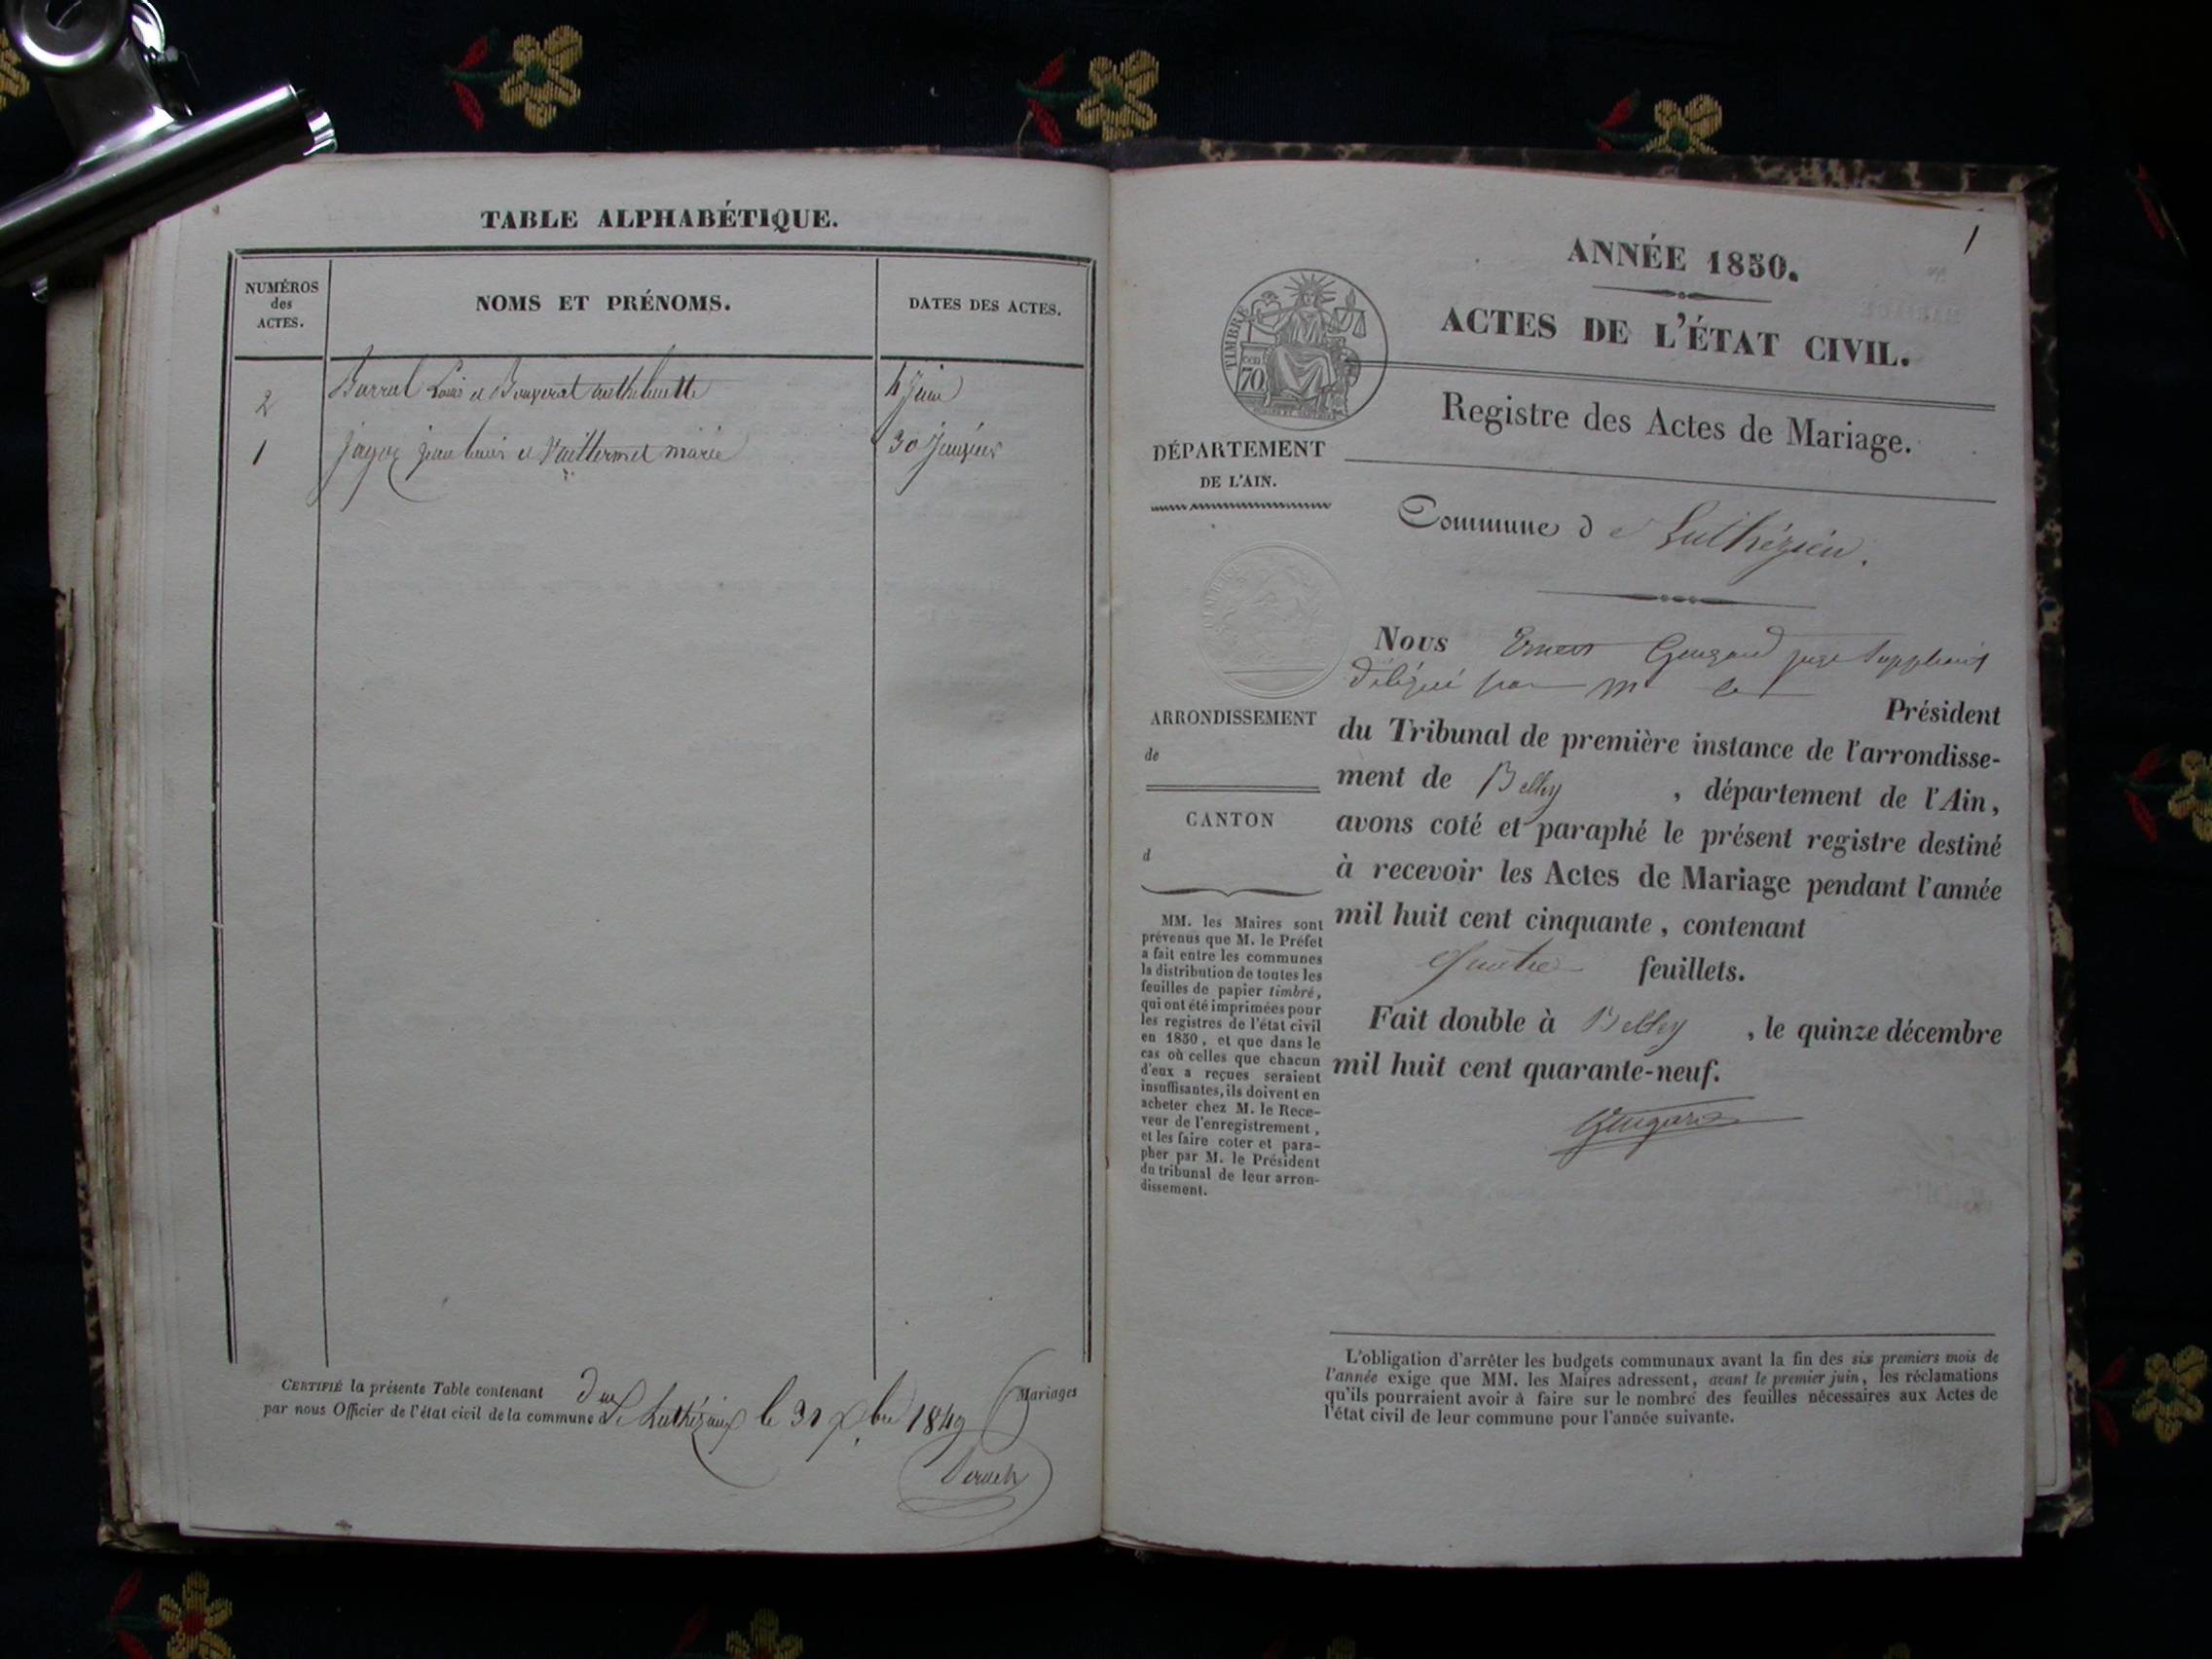 TABLE ALPHABÉTIQUE.
NUMÉROS
des
ACTES.
NOMS ET PRÉNOMS.
DATES DES ACTES.
2 Barral Louis et anthelmette 4 Juin
1 jean louis et marie 30 janvier
CERTIFIÉ la présente Table contenant deux Mariages
par nous Officier de l'état civil de la commune de Luthézieu le 31 Xbre 1849
1
ANNÉE 1850.
ACTES DE L'ÉTAT CIVIL.
TIMBRE
70 cen
Registre des Actes de Mariage.
DÉPARTEMENT
DE L'AIN.
Commune de Luthézieu.
Nous Ernest juge suppléant
délégué par Mr le
Président
du Tribunal de première instance de l'arrondisse-
ment de Belley , département de l'Ain,
avons coté et paraphé le présent registre destiné
à recevoir les Actes de Mariage pendant l'année
mil huit cent cinquante, contenant
quatre feuillets.
Fait double à Belley , le quinze décembre
mil huit cent quarante-neuf.
ARRONDISSEMENT
de
CANTON
d
MM. les Maires sont
prévenus que M. le Préfet
a fait entre les communes
la distribution de toutes les
feuilles de papier timbré,
qui ont été imprimées pour
les registres de l'état civil
en 1850, et que dans le
cas où celles que chacun
d'eux a reçues seraient
insuffisantes, ils doivent en
acheter chez M. le Rece-
veur de l'enregistrement,
et les faire coter et para-
pher par M. le Président
du tribunal de leur arron-
dissement.
L'obligation d'arrêter les budgets communaux avant la fin des six premiers mois de
l'année exige que MM. les Maires adressent, avant le premier juin, les réclamations
qu'ils pourraient avoir à faire sur le nombre des feuilles nécessaires aux Actes de
l'état civil de leur commune pour l'année suivante.